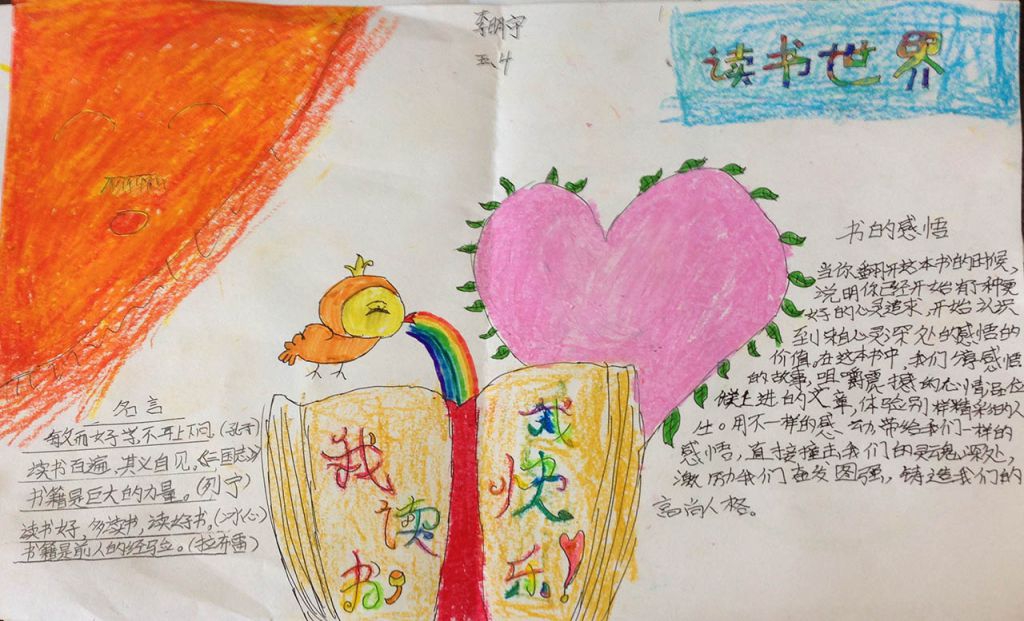 李明宇
五.4
读书世界
书的感悟
当你翻开这本书的时候,
说明你已经开始有了一种更
好的心灵追求,开始认识
到来自心灵深处的感悟的
价值。在这本书中,我们将感悟
的故事,咀嚼震撼的心情品位
上进的文章,体验别样精彩的人
生。用不一样的感动带给我们一样的
感悟,直接撞击我们的灵魂深处,
激励我们在发图强,铸造我们的
高尚人格。
名言
敏而好学,不耳上下问。(孔子)
读书百遍,其义自见。《三国志》
书籍是巨大的力量。(列宁)
读书好,多读书,读好书。(冰心)
书籍是前人的经验。(拉布雷)
我
读
书,
我
快
乐!